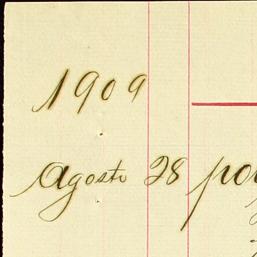 1909
Agosto 28 por